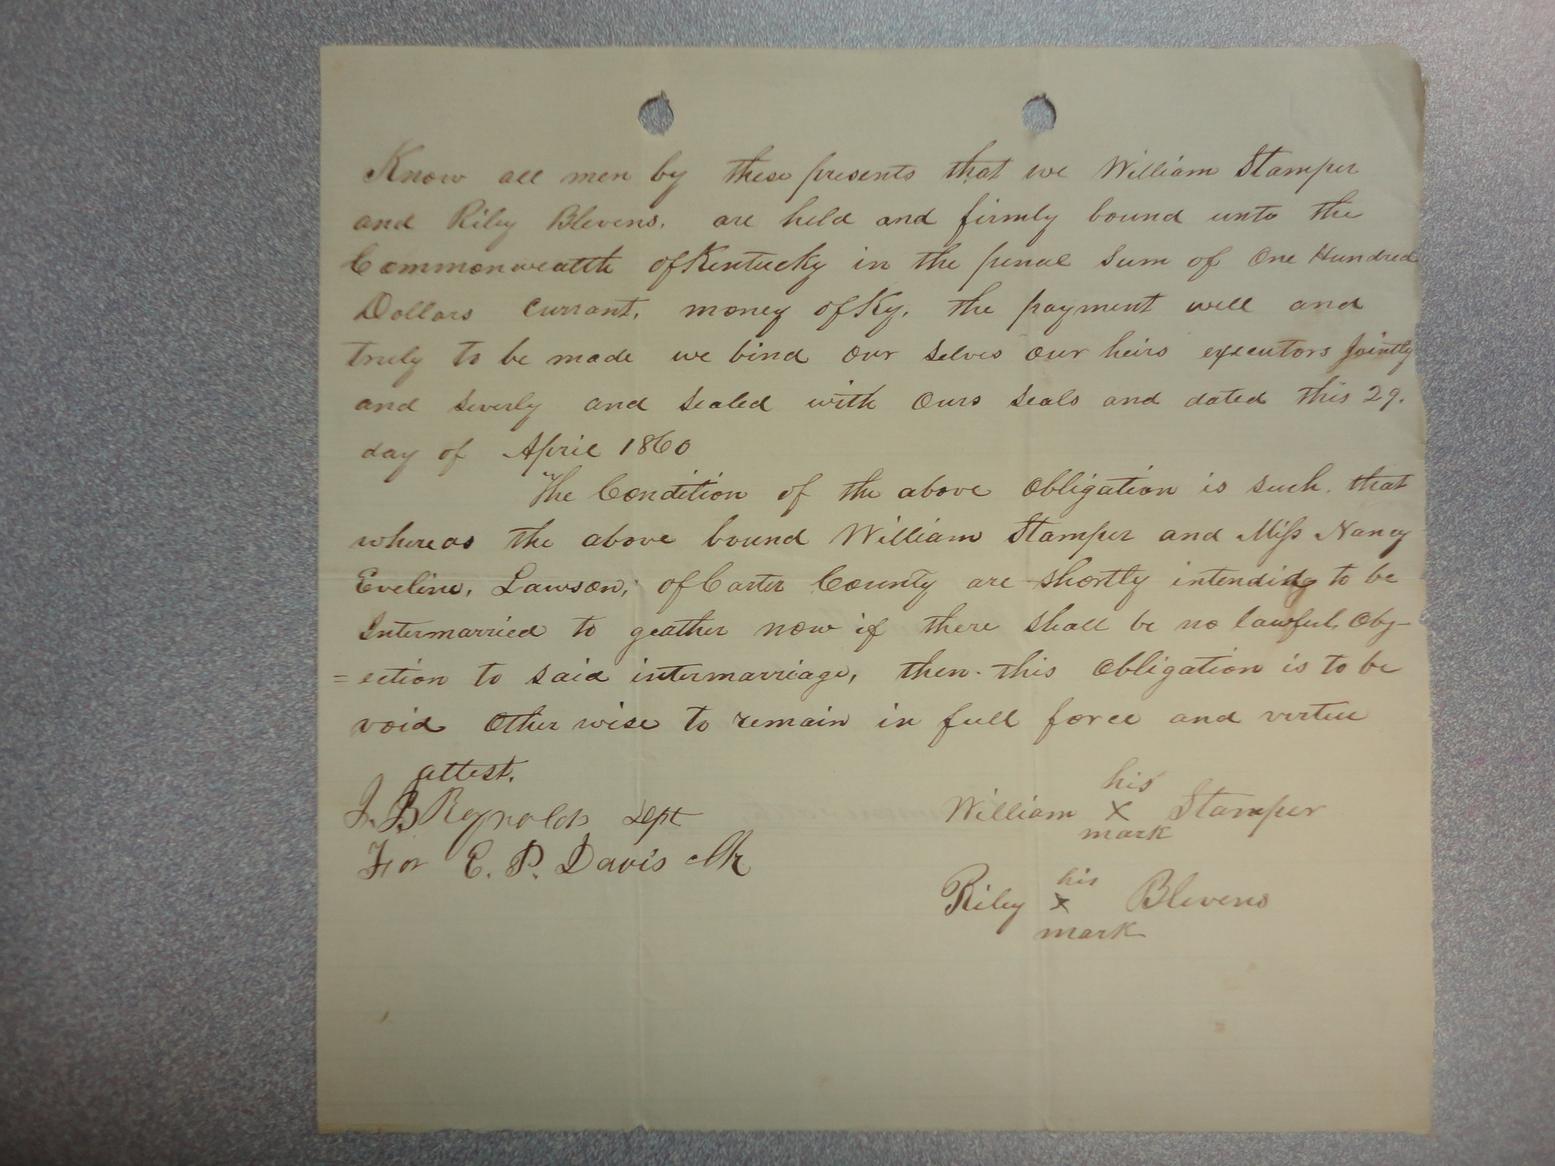 Know all men by these presents that we William Stamper
and Riley Blevens, are held and firmly bound unto the
Commonwealth of Kentucky in the penal sum of One Hundred
Dollars currant, money of Ky, the payment well and
truly to be made we bind our selves our heirs executors Jointly
and severly and sealed with ours seals and dated this 29.
day of April 1860
The Condition of the above Obligation is such. that
whereas the above bound William Stamper and Miss Nancy
Eveline, Lawson, of Carter County are shortly intending to be
Intermarried to geather now if there shall be no lawful Obj-
=ection to said intermarriage, then this Obligation is to be
void Other wise to remain in full force and vertue
attest.
J. B Reynolds Dept
For E. P. Davis Clk
his
William X Stamper
mark
his
Riley X Blevens
mark